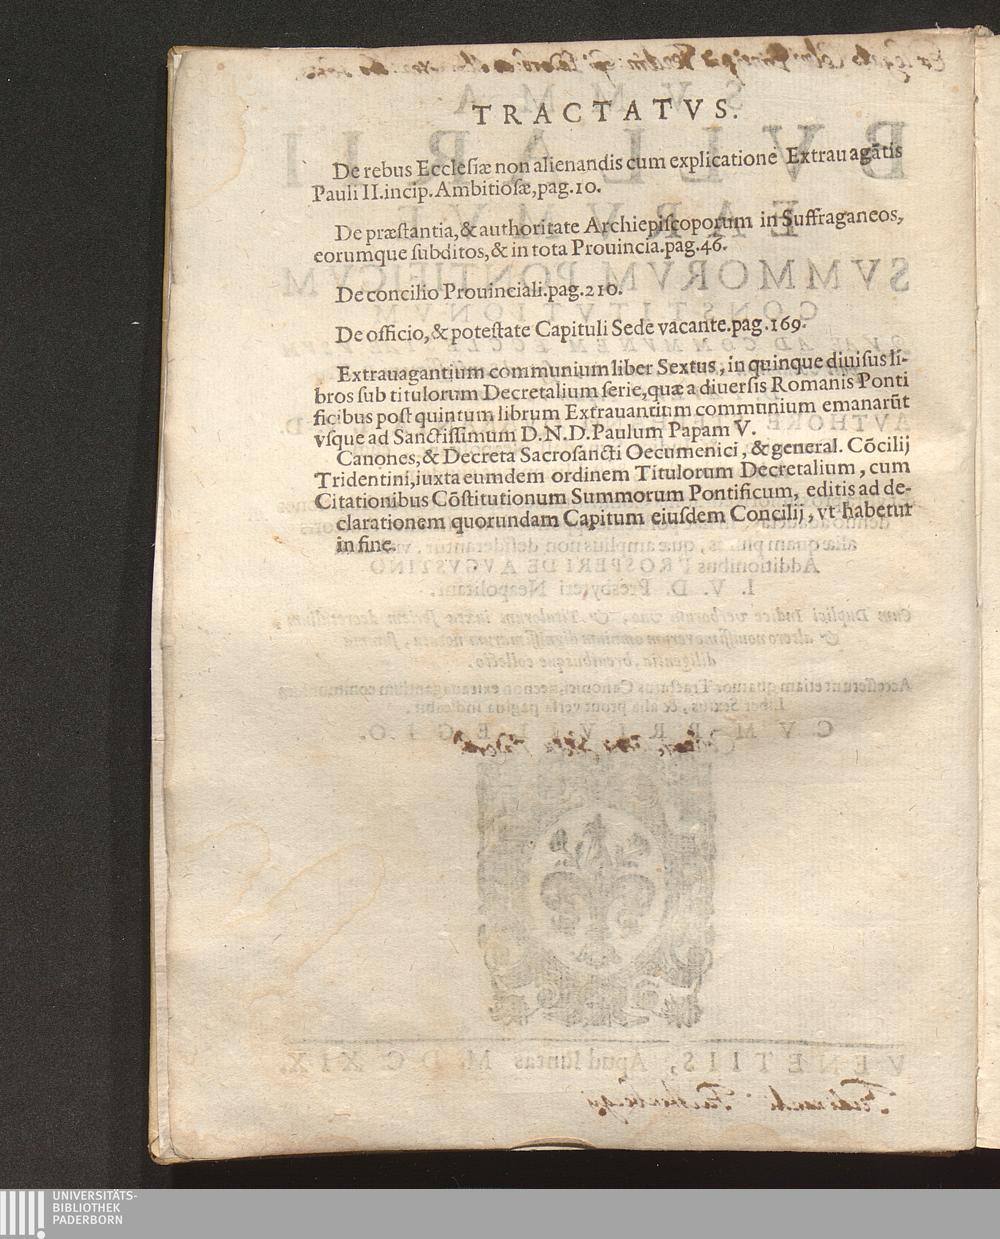 TRACTATVS.
De rebus Ecclesiæ non alienandis cum explicatione Extrauagātis
Pauli II.incip.Ambitiosæ,pag.10.
De præstantia,& authoritate Archiepiscoporum in Suffraganeos,
eorumque subditos,& in tota Prouincia.pag.46.
De concilio Prouinciali.pag.210.
De officio,& potestate Capituli Sede vacante.pag.169.
Extrauagantium communium liber Sextus, in quinque diuisus li-
bros sub titulorum Decretalium serie,quæ a diuersis Romanis Ponti
ficibus post quintum librum Extrauantium communium emanarūt
vsque ad Sanctissimum D.N.D.Paulum Papam V.
Canones,& Decreta Sacrosancti Oecumenici, & general. Cōcilij
Tridentini,iuxta eumdem ordinem Titulorum Decretalium, cum
Citationibus Cōstitutionum Summorum Pontificum, editis ad de-
clarationem quorundam Capitum eiusdem Concilij, vt habetur
in fine.
UNIVERSITÄTS-
BIBLIOTHEK
PADERBORN